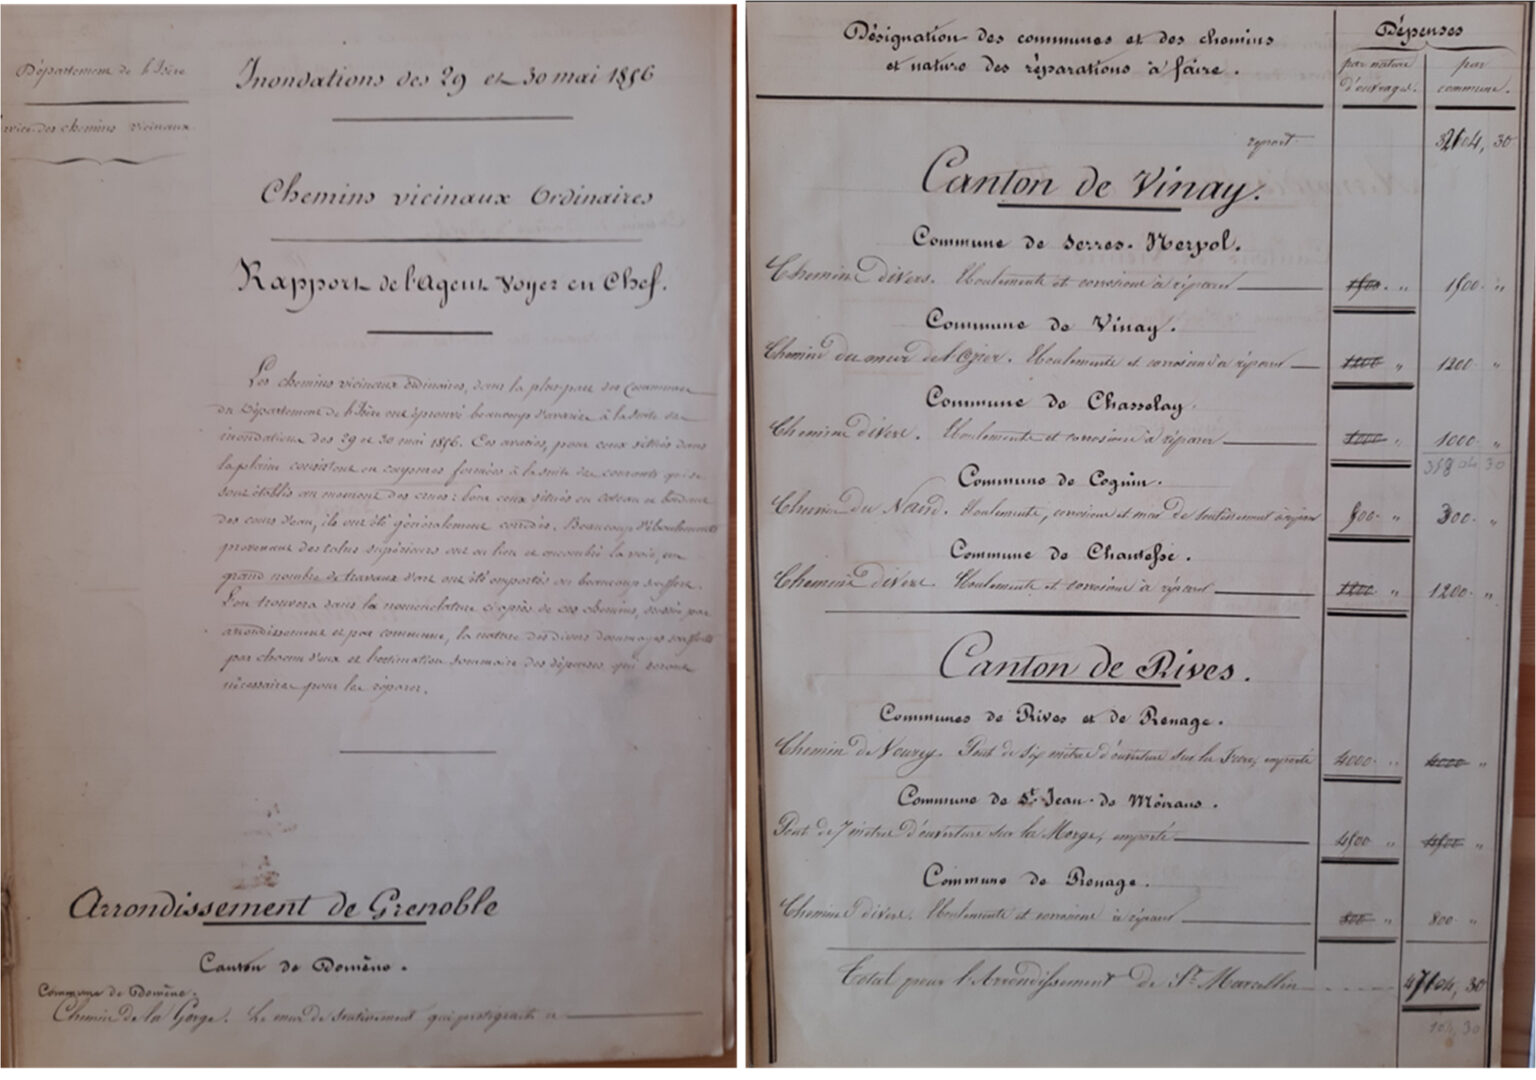 Département de l'Isère
vice des chemins vicinaux
Inondations des 29 et 30 mai 1856
Chemins vicinaux Ordinaires
Rapport de l'Agent Voyer en Chef.
Les chemins vicinaux ordinaires, dans la plupart des Communes
du Département de l'Isère ont éprouvé beaucoup d'avaries à la suite des
inondations des 29 et 30 mai 1856. Ces avaries, pour ceux situés dans
la plaine consistent en formées à la suite des courants qui se
sont établis au moment des crues: Pour ceux situés en coteau et bordant
des cours d'eau, ils ont été généralement corrodés. Beaucoup d'éboulements
provenant des talus supérieurs ont eu lieu et encombré la voie, un
grand nombre de travaux d'art ont été emportés ou beaucoup souffert.
L'on trouvera dans la nomenclature ci-après de ces chemins, dressée par
arrondissement et par commune, la nature des divers dommages soufferts
par chacun d'eux et l'estimation sommaire des dépenses qui seront
nécessaires pour les réparer.
Arrondissement de Grenoble
Canton de Domène.
Commune de Domène.
Chemin de la Gorge. Le mur de soutènement qui protégeait
Désignation des communes et des chemins
et nature des réparations à faire.
Dépenses
par nature d'ouvrages.
par commune.
report 32104, 30
Canton de Vinay.
Commune de Serres-Nerpol.
Chemins divers. Eboulements et corrosions à réparer 1500 " 1500 "
Commune de Vinay.
Chemin du mur de Eboulements et corrosions à réparer 1200 " 1200 "
Commune de Chasselay.
Chemins divers. Eboulements et corrosions à réparer 1000 " 1000 "
30
Commune de Cognin.
Chemin du Eboulements, corrosions et mur de soutènement à réparer 300 "
Commune de Chantesse.
Chemins divers. Eboulements et corrosions à réparer 1200 " 1200 "
Canton de Rives.
Communes de Rives et de Renage.
Chemin de Vourey. Pont de six mètres d'ouverture sur la Fure, emporté 4000 " 4000 "
Commune de St Jean de Moirans.
Pont de 7 mètres d'ouverture sur la Morge, emporté 4500 " 4500 "
Commune de Renage.
Chemins divers. Eboulements et corrosions à réparer 800 " 800 "
Total pour l'Arrondissement de St Marcellin 47104, 30
104, 30